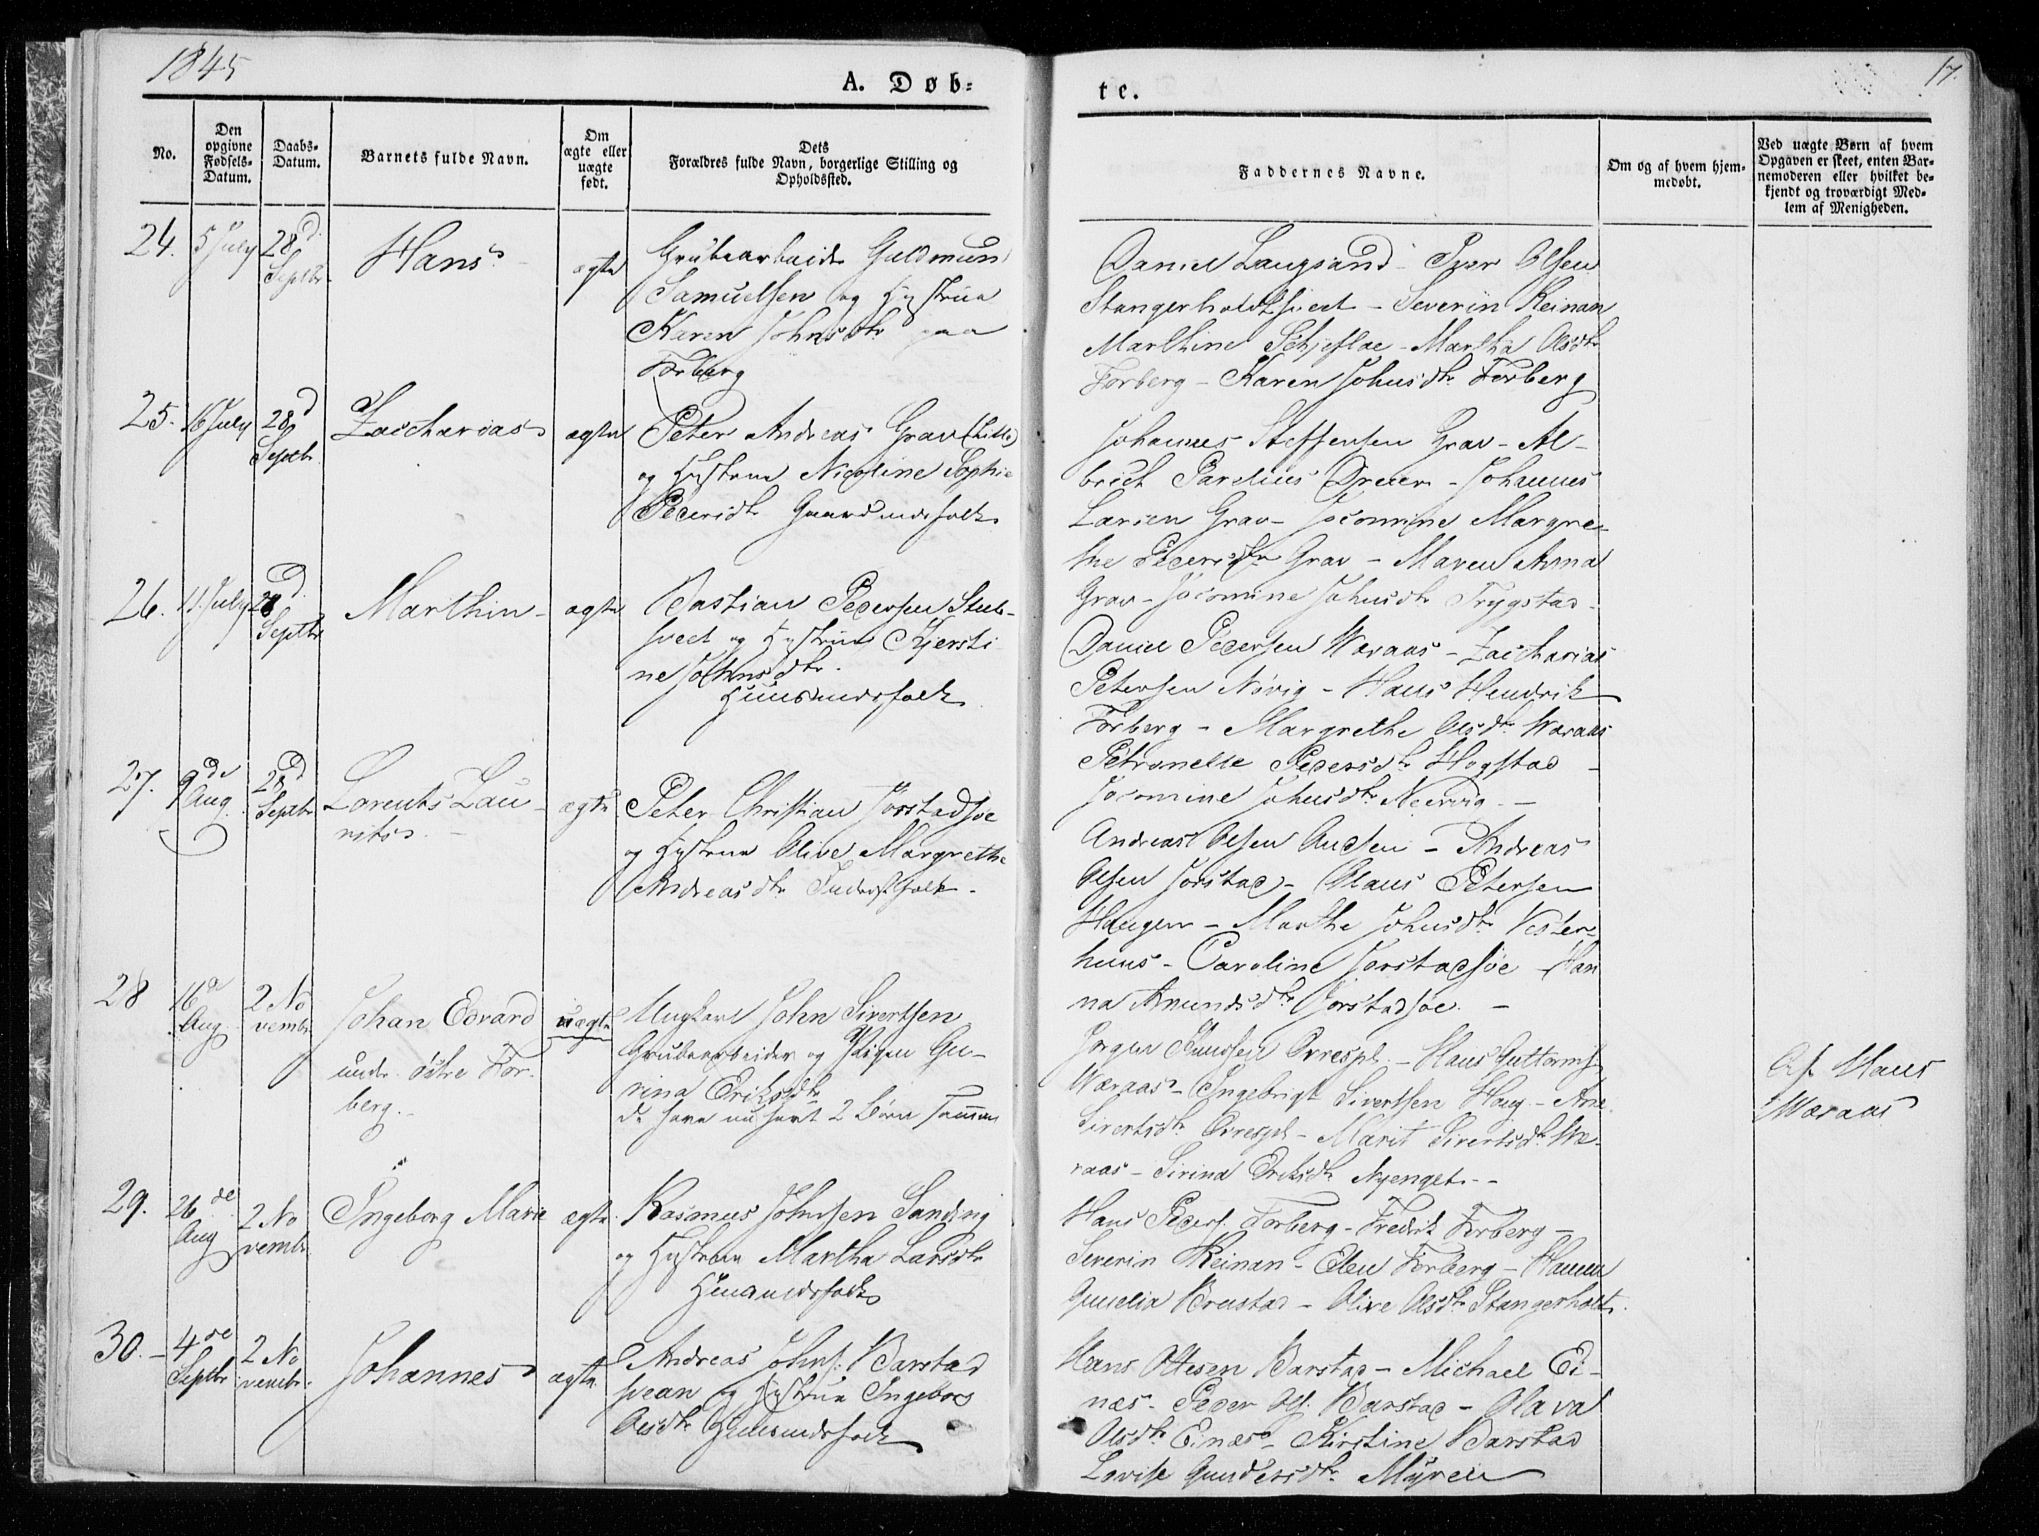 1845
17.
A. Døb=
te.
No.
Den opgivne Fødsels-Datum.
Daabs-Datum.
Barnets fulde Navn.
Om ægte eller uægte født.
Dets Forældres fulde Navn, borgerlige Stilling og Opholdssted.
Faddernes Navne.
Om og af hvem hjem-
medøbt.
Ved uægte Børn af hvem
Opgaven er skeet, enten Bar-
nemoderen eller hvilket be-
kjendt og troværdigt Med-
lem af Menigheden.
24. 5 July 28d Septbr Hans ægte
Grubearbeider Guldmund
Samuelsen og Hustrue
Karen Johnsdtr paa
Forberg
Daniel Langsand - Peer Olsen
Stangerholdtsveet - Severin Reinan
Marthine Schjeflae - Martha Olsdtr
Forberg - Karen Johnsdtr Forberg
25. 16 July 28d Septbr Zaccharias ægte
Peter Andreas Grav (Lille)
og Hustrue Nicoline Sophie
Pedersdtr Gaardmdsfolk
Johannes Steffensen Grav - Al-
brict Parelius Dreier - Johannes
Larsen Grav - Jocomine Margre-
the Pedersdtr Grav - Maren Anna
Grav - Jocomine Johnsdtr Trygstad
26. 11 July 28d Septbr Marthin - ægte
Bastian Pedersen Stub-
sveet og Hustrue Kjersti
ne Johnsdtr.
Huusmdsfolk
Daniel Pedersen Waraas - Zaccharias
Petersen Növig - Hans Hendrik
Forberg - Margrethe Olsdtr Waraas
Petronelle Pedersdtr Hogstad -
Jocomine Johnsdtr Neervig -
27. 9de Aug. 28d Septbr Lorents Lau-
rits. ægte
Peter Christian Jorstadsøe
og Hustrue Olive Margrethe
Andreasdtr Inderstfolk -
Andreas Olsen Audsen - Andreas
Olsen Jorstad - Claus Petersen
Haugen - Marthe Johnsdtr Vester-
huus - Caroline Jorstadsøe - Han
na Amundsdtr Jorstadsøe. -
28 16d Aug. 2 No
vembr Johan Edvard
under östre For-
berg. - uægte
Ungkarl John Sivertsen
Grubearbeider og Pigen Gu-
rina Eriksdtr
de have nu havt 2 Børn sammen
Jørgen Knudsen Orrespl. - Hans Guttorms.
Waraas - Ingebrigt Sivertsen Haug - Ane
Sivertsdtr Orrespl - Marit Sivertsdtr Wa-
raas - Sirina Eriksdtr Nyenget. -
Af Hans
Waraas
29. 26de Aug 2 No
vembr Ingeborg Marie ægte
Rasmus Johnsen Sanding
og Hustrue Martha Larsdtr
Huusmdsfolk
Hans Peders. Forberg - Fredrik Forberg -
Severin Reinan - Elen Forberg - Hanna
Gunelia Brustad - Olive Olsdtr Stangerholt.
30. - 4de Septbr 2 No
vembr. Johannes ægte
Andreas Johns. Barstad
svean og Hustrue Ingeborg
Olsdtr Huusmdsfolk
Hans Ottesen Barstad - Michael Ei-
næs - Peder Ols. Barstad - Olava
Olsdtr Einæs - Kirstine Barstad
Lovise Gundersdtr Myren